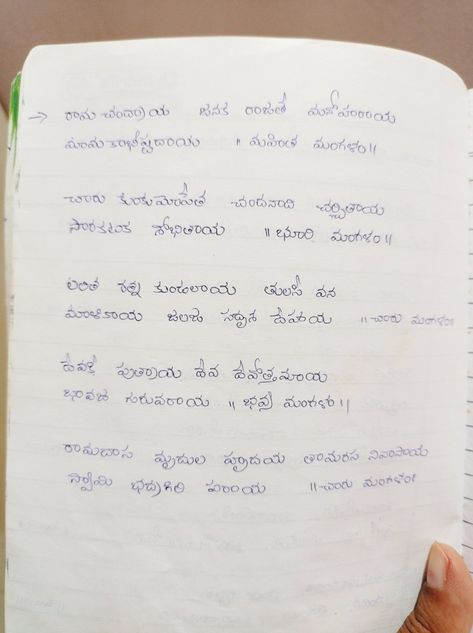 → రామ చంద్రాయ జనక రాజతే మనోహరాయ
మామకాభీష్టదాయ ॥ మహిత మంగళం॥
చారు కుంకుమోపేత చందనాది చర్చితాయ
హారకటక శోభితాయ ॥ భూరి మంగళం॥
లలిత రత్న కుండలాయ తులసీ వన
మాళికాయ జలజ సదృశ దేహాయ ॥చారు మంగళం॥
దేవకీ పుత్రాయ దేవ దేవోత్తమాయ
భావజ గురువరాయ ॥ భవ్య మంగళం॥
రామదాస మృదుల హృదయ తామరస నివాసాయ
స్వామి భద్రగిరి వరాయ ॥చారు మంగళం॥